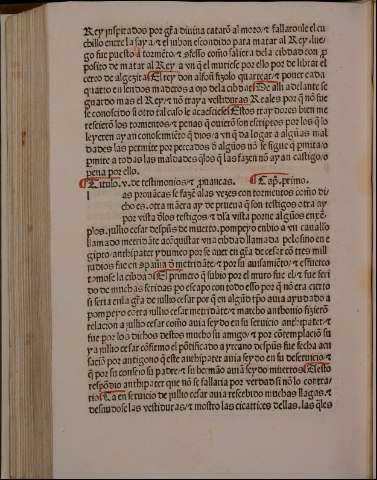 Rey inspirados por gr̃a diuina cataro᷉ al moro/ ⁊ fallaronle el cu
chillo entre la saya/ ⁊ el jubon escondido para matar al Rey. lue
go fue puesto a torme᷉to/ ⁊ ↄfesso como saliera dela cibdad con p̱
posito de matar al Rey a vn q̃l muriesse por ello por de librar el
cerco de algezira El rey don alfo᷉so fizolo quartear/ ⁊ poner cada
quarto en sendos maderos a ojo dela cibdat De alli adelante se
guardo mas el Rey/ ⁊ no traya vestiduras Reales por q̃ no᷉ fue
se conoscido si otro tal caso le acaesciese Estos traydores bien me
resciero᷉ los torme᷉tos/ ⁊ penas q̃ quiero᷉ son escriptos por los q̃ lo
leyeren ay an conoscimie᷉to q̃ dios a vn q̃ da logar a algu᷉as mal
dades las permite por peccados d̃ algu᷉os no᷉ se sigue q̃ p̱mita/ o
p̱mite a todas las maldades q̃ los q̃ las fazen no᷉ ay an castigo/ o
pena por ello.
Titulo. v. de testimonios/ ⁊ p̱uancas. Cap̃. primo.
las prouãcas se faze᷉ alas vezes con tormentos como di
cho es. otra ma᷉era ay de prueua q̃ son testigos otra ay
por vista d̃los testigos/ ⁊ d̃sta vista porne algu᷉os enxe᷉
plos. julio cesar despu᷉s de muerto. pompeyo enbio a vn cauallo
llamado metridate acõquistar vna cibdad llamada pelosino en e
gipto/ antbipater y dumeo por se auer en gr̃a de cesar co᷉ tres mill
judios fue en ayuda d̃ metridate/ ⁊ por su ausamie᷉to/ ⁊ esfuerço
tomose la cibdad El primero q̃ subio por el muro fue el/ ⁊ fue feri
do de muchas feridas po escapo con todo ello por q̃ no᷉ era cierto
si seria enla gr̃a de julio cesar por q̃ en algu᷉d tp̃o auia ayudado a
pompeyo co᷉tra julio cesar metridate/ ⁊ marcho anthonio fiziero᷉
relacion a julio cesar como auia seydo en su seruicio antbipater/ ⁊
fue por los dichos destos mucho su amigo/ ⁊ por co᷉templacio᷉ su
ya julio cesar co᷉firmo el po᷉tificado a yrcano despu᷉s fue fecha acu
sacio᷉ por antigono q̃ este antbipater auia seydo en su deseruicio/ ⁊
q̃ por su consejo su padre/ ⁊ su hermão auia᷉ seydo muertos A esto
respo᷉dio antbipater que no᷉ se fallaria por verdad si no᷉ lo contra/
rio Ca en seruicio de julio cesar auia rescebido muchas llagas/ ⁊
desnudose las vestiduras/ ⁊ mostro las cicatrices dellas. las q̃les